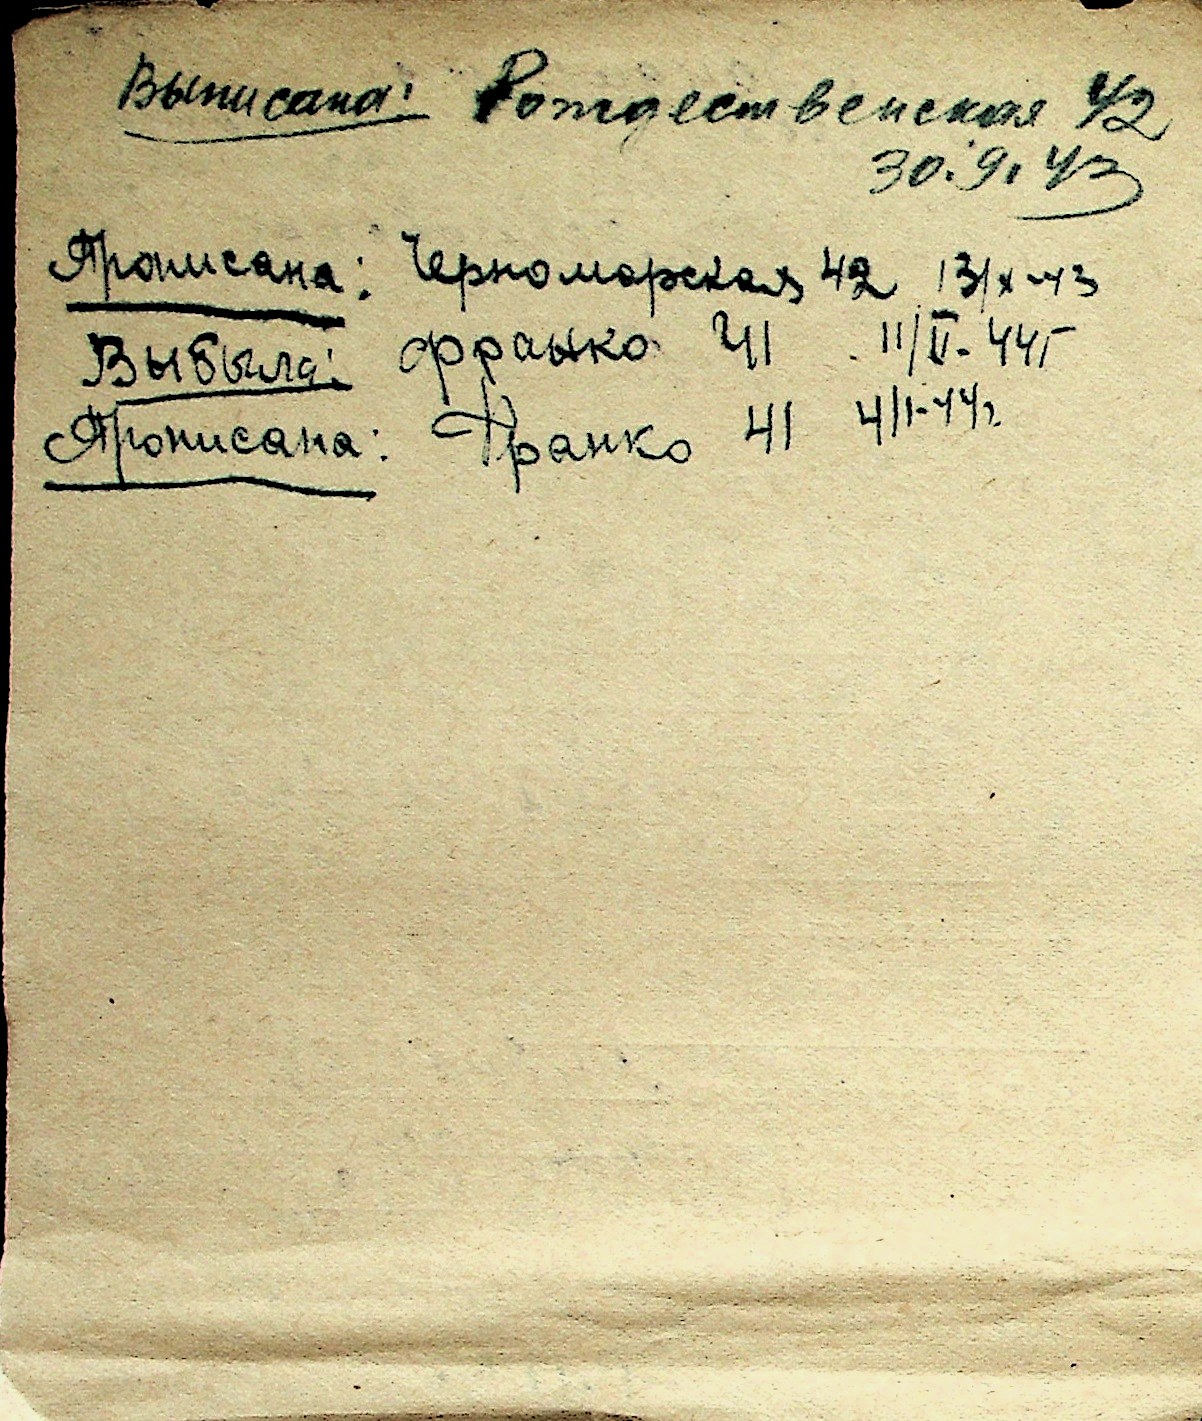 Выписана: Рождественская 42
30.9.43
Прописана: Черноморская 42 13/X-43
Выбыла: Франко 41 11/II-44г
Прописана: Франко 41 4/I-44г.